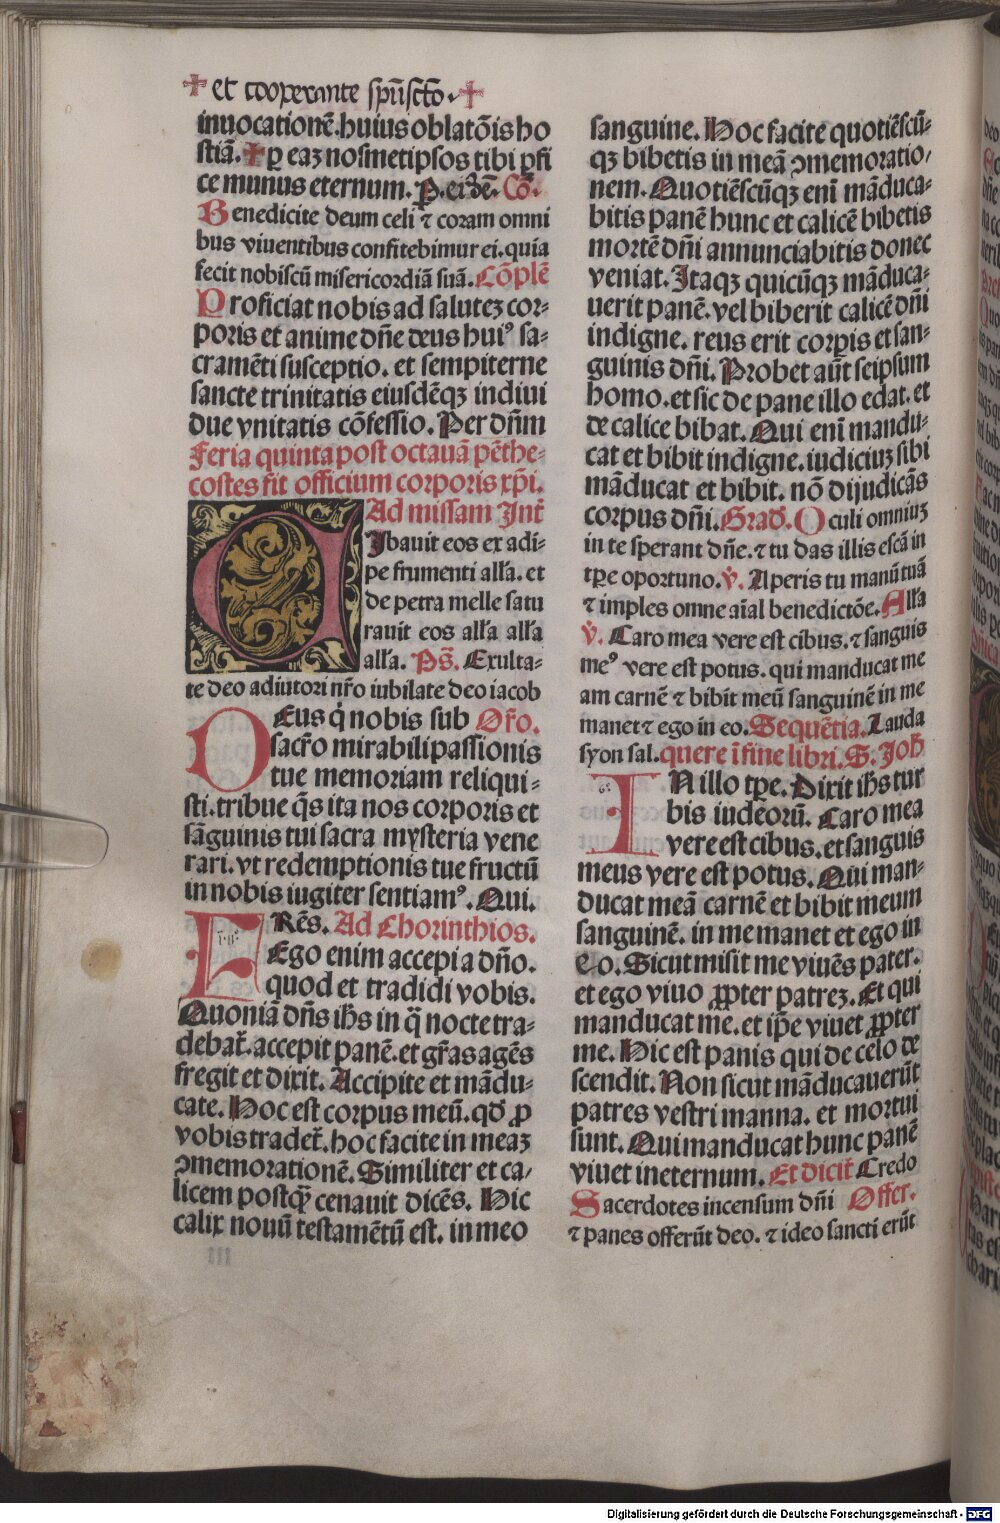 ✝ et cooperante spūsctō ✝
inuocationē. huius oblatōis ho
stiā. ✝ ꝑ eaꝫ nosmetipsos tibi ꝑfi
ce munus eternum. Ꝑ. eiꝰdē. Cō.
Benedicite deum celi ⁊ coram omni
bus viuentibus confitebimur ei. quia
fecit nobiscū misericordiā suā. Cōplē
Proficiat nobis ad salutez cor-
poris et anime dn̄e deus huiꝰ sa-
cramēti susceptio. et sempiterne
sancte trinitatis eiusdēqꝫ indiui
due vnitatis cōfessio. Per dn̄m
Feria quinta post octauā pēthe-
costes fit officium corporis xp̄i.
Ad missam Int̄
CIbauit eos ex adi-
pe frumenti all'a. et
de petra melle satu
rauit eos all'a all'a
all'a. Ps̄. Exulta-
te deo adiutori nr̄o iubilate deo iacob
DEus q̇ nobis sub Or̄o.
sacr̄o mirabili passionis
tue memoriam reliqui-
sti. tribue q̄s ita nos corporis et
sāguinis tui sacra mysteria vene
rari. vt redemptionis tue fructū
in nobis iugiter sentiamꝰ. Qui.
FRēs. Ad Chorinthios.
Ego enim accepi a dn̄o.
quod et tradidi vobis.
Quoniā dn̄s ih̄s in q̄ nocte tra-
debat̄. accepit panē. et gr̄as agēs
fregit et dixit. Accipite et mādu-
cate. Hoc est corpus meū. qd̄ ꝓ
vobis tradet̄. hoc facite in meaꝫ
ↄmemorationē. Similiter et ca-
licem postq̄ꝫ cenauit dicēs. Hic
calix nouū testamētū est. in meo
sanguine. Hoc facite quotiēscū-
qꝫ bibetis in meā ↄmemoratio-
nem. Quotiēscūqꝫ enī māduca-
bitis panē hunc et calicē bibetis
mortē dn̄i annunciabitis donec
veniat. Itaqꝫ quicūqꝫ māduca-
uerit panē. vel biberit calicē dn̄i
indigne. reus erit corpis et san-
guinis dn̄i. Probet aūt seipsum
homo. et sic de pane illo edat. et
de calice bibat. Qui enī mandu-
cat et bibit indigne. iudiciuꝫ sibi
māducat et bibit. nō dijudicās
corpus dn̄i. Grad̄. Oculi omniuꝫ
in te sperant dn̄e. ⁊ tu das illis escā in
tp̄e oportuno. V̇. Aperis tu manū tuā
⁊ imples omne aīal benedictōe. All'a
V̇. Caro mea vere est cibus. ⁊ sanguis
meꝰ vere est potus. qui manducat me
am carnē ⁊ bibit meū sanguinē in me
manet ⁊ ego in eo. Sequētia. Lauda
syon sal. quere ī fine libri. S. Joh̄
IN illo tp̄e. Dixit ih̄s tur
bis iudeorū. Caro mea
vere est cibus. et sanguis
meus vere est potus. Qui man-
ducat meā carnē et bibit meum
sanguinē. in me manet et ego in
eo. Sicut misit me viuēs pater.
et ego viuo ꝓpter patreꝫ. Et qui
manducat me. et ip̄e viuet ꝓpter
me. Hic est panis qui de celo de
scendit. Non sicut māducauerūt
patres vestri manna. et mortui
sunt. Qui manducat hunc panē
viuet in eternum. Et dicit̄ Credo
Sacerdotes incensum dn̄i Offer.
⁊ panes offerūt deo. ⁊ ideo sancti erūt
Digitalisierung gefördert durch die Deutsche Forschungsgemeinschaft - DFG